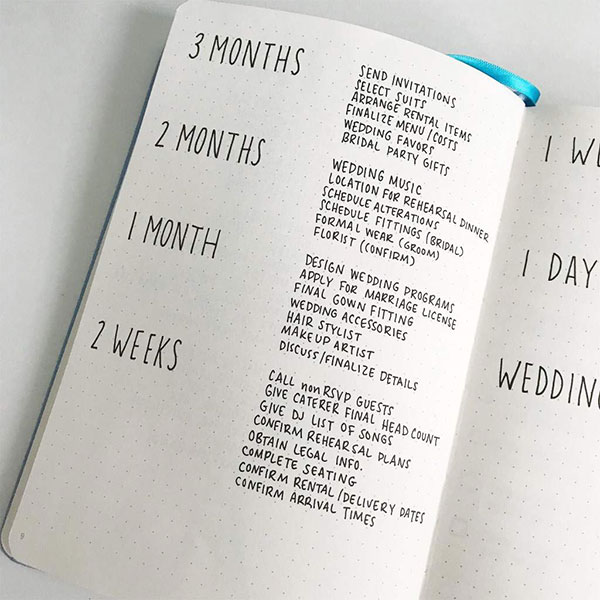 3 MONTHS
SEND INVITATIONS
SELECT SUITS
ARRANGE RENTAL ITEMS
FINALIZE MENU/COSTS
WEDDING FAVORS
BRIDAL PARTY GIFTS
2 MONTHS
WEDDING MUSIC
LOCATION FOR REHEARSAL DINNER
SCHEDULE ALTERATIONS
SCHEDULE FITTINGS (BRIDAL)
FORMAL WEAR (GROOM)
FLORIST (CONFIRM)
1 MONTH
DESIGN WEDDING PROGRAMS
APPLY FOR MARRIAGE LICENSE
FINAL GOWN FITTING
WEDDING ACCESSORIES
HAIR STYLIST
MAKEUP ARTIST
DISCUSS/FINALIZE DETAILS
2 WEEKS
CALL non RSVP GUESTS
GIVE CATERER FINAL HEAD COUNT
GIVE DJ LIST OF SONGS
CONFIRM REHEARSAL PLANS
OBTAIN LEGAL INFO.
COMPLETE SEATING
CONFIRM RENTAL/DELIVERY DATES
CONFIRM ARRIVAL TIMES
1 WE
1 DAY
WEDDING